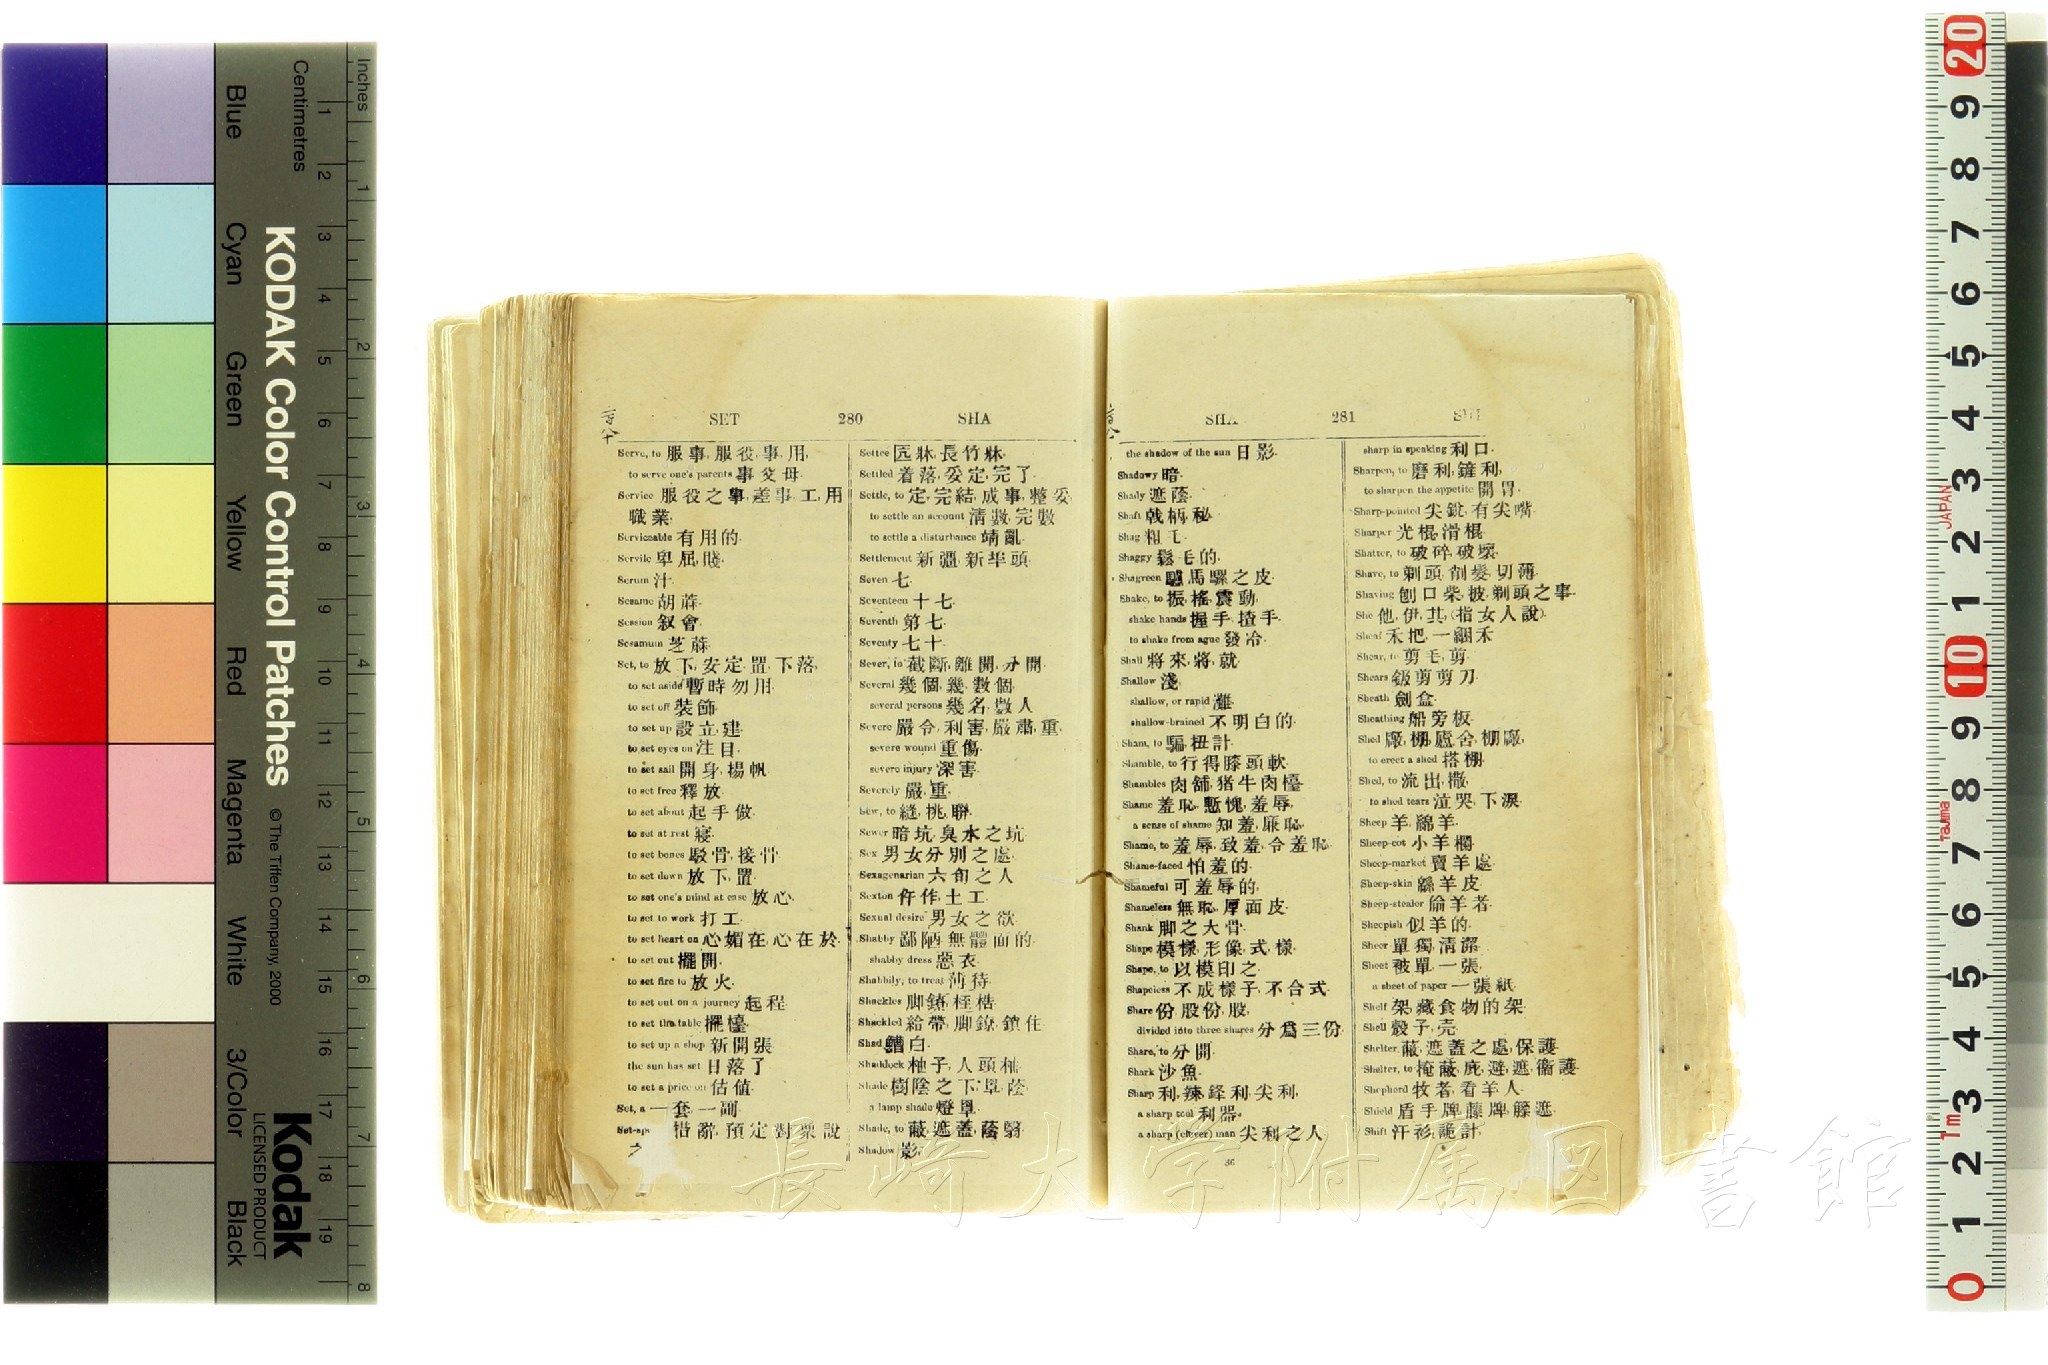 SET 280 SHA
Serve, to 服事, 服役, 事, 用,
to serve one's parents 事父母.
Service 服役之事, 差事, 工, 用
職業.
Serviceable 有用的.
Servile 卑屈, 賤.
Serum 汁.
Sesame 胡蔴.
Session 叙會.
Sesamum 芝蔴.
Set, to 放下, 安定, 置, 下落,
to set aside 暫時勿用.
to set off 裝飾.
to set up 設立, 建.
to set eyes on 注目.
to set sail 開身, 楊帆.
to set free 釋放.
to set about 起手做.
to set at rest 寢.
to set bones 駁骨, 接骨
to set down 放下, 置.
to set one's mind at ease 放心.
to set to work 打工.
to set heart on 心媚在, 心在於.
to set out 擺開.
to set fire to 放火.
to set out on a journey 起程.
to set the table 擺檯.
to set up a shop 新開張
the sun has set 日落了
to set a price on 估值.
Set, a 一套, 一副.
預定
Settee 長竹牀.
Settled 着落, 妥定, 完了.
Settle, to 定, 完結, 成事, 整妥.
to settle an account 清數, 完數
to settle a disturbance 靖亂.
Settlement 新疆, 新埠頭.
Seven 七.
Seventeen 十七.
Seventh 第七.
Seventy 七十.
Sever, to 截斷, 離開, 分開.
Several 幾個, 幾, 數個.
several persons 幾名, 數人
Severe 嚴令, 利害, 嚴肅, 重.
severe wound 重傷.
severe injury 深害.
Severely 嚴, 重.
Sew, to 縫, 挑, 聯.
Sewer 暗坑, 臭水之坑.
Sex 男女分別之處.
Sexagenarian 六旬之人
Sexton 仵作, 土工.
Sexual desire 男女之欲.
Shabby 鄙陋, 無體面的.
shabby dress 惡衣.
Shabbily, to treat 薄待.
Shackles 脚鐐, 桎梏.
Shackled 給帶, 脚鐐, 鎖住.
Shad 鰽白.
Shaddock 柚子, 人頭柚.
Shade 樹陰之下, 罩, 蔭.
a lamp shade 燈罩.
Shade, to 蔽, 遮蓋, 蔭翳.
Shadow 影.
SHA 281
the shadow of the sun 日影.
Shadowy 暗.
Shady 遮蔭.
Shaft 戟柄, 秘.
Shag 粗毛.
Shaggy 鬆毛的.
Shagreen 驢馬騾之皮.
Shake, to 振, 搖, 震動,
shake hands 握手, 揸手.
to shake from ague 發冷.
Shall 將來, 將, 就.
Shallow 淺,
shallow, or rapid 灘.
shallow-brained 不明白的.
Sham, to 騙, 扭計.
Shamble, to 行得膝頭軟.
Shambles 肉舖, 猪牛肉檯.
Shame 羞恥, 慙愧, 羞辱,
a sense of shame 知羞, 廉恥.
Shame, to 羞辱, 致羞, 令羞恥.
Shame-faced 怕羞的.
Shameful 可羞辱的,
Shameless 無恥, 厚面皮.
Shank 脚之大骨.
Shape 模樣, 形像, 式樣.
Shape, to 以模印之.
Shapeless 不成樣子, 不合式.
Share 份, 股份, 股,
divided into three shares 分爲三份.
Share, to 分開.
Shark 沙魚.
Sharp 利, 辣, 鋒利, 尖利,
a sharp tool 利器.
a sharp (clever) man 尖利之人
36
sharp in speaking 利口.
Sharpen, to 磨利, 鏟利,
to sharpen the appetite 開胃.
Sharp-pointed 尖銳, 有尖嘴.
Sharper 光棍, 滑棍.
Shatter, to 破碎, 破壞.
Shave, to 剃頭, 削髮, 切薄.
Shaving 剃頭之事.
She 他, 伊, 其, (指女人說).
Sheaf 禾把, 一綑禾
Shear, to 剪毛, 剪.
Shears 鉸剪, 剪刀.
Sheath 劍盒.
Sheathing 船旁板.
Shed 廠, 棚, 廬舍, 棚廠,
to erect a shed 搭棚.
Shed, to 流出, 撒,
to shed tears 泣哭, 下淚.
Sheep 羊, 綿羊.
Sheep-cot 小羊欄.
Sheep-market 賣羊處.
Sheep-skin 緜羊皮.
Sheep-stealer 偷羊者.
Sheepish 似羊的.
Sheer 單獨, 清潔.
Sheet 被單, 一張.
a sheet of paper 一張紙.
Shelf 架, 藏食物的架.
Shell 殼子, 売.
Shelter 蔽, 遮蓋之處, 保護.
Shelter, to 掩蔽, 庇, 避, 遮, 衞護.
Shepherd 牧者, 看羊人.
Shield 盾, 手牌, 藤牌, 籐遮.
Shift 汗衫, 詭計,
長崎大学附属図書館
Inches
Centimetres
KODAK Color Control Patches
© The Tiffen Company, 2000
Kodak
LICENSED PRODUCT
Blue
Cyan
Green
Yellow
Red
Magenta
White
3/Color
Black
1 2 3 4 5 6 7 8 9 10 11 12 13 14 15 16 17 18 19
1 2 3 4 5 6 7 8
20 9 8 7 6 5 4 3 2 1 10 9 8 7 6 5 4 3 2 1 0
JAPAN
Tajima
1m